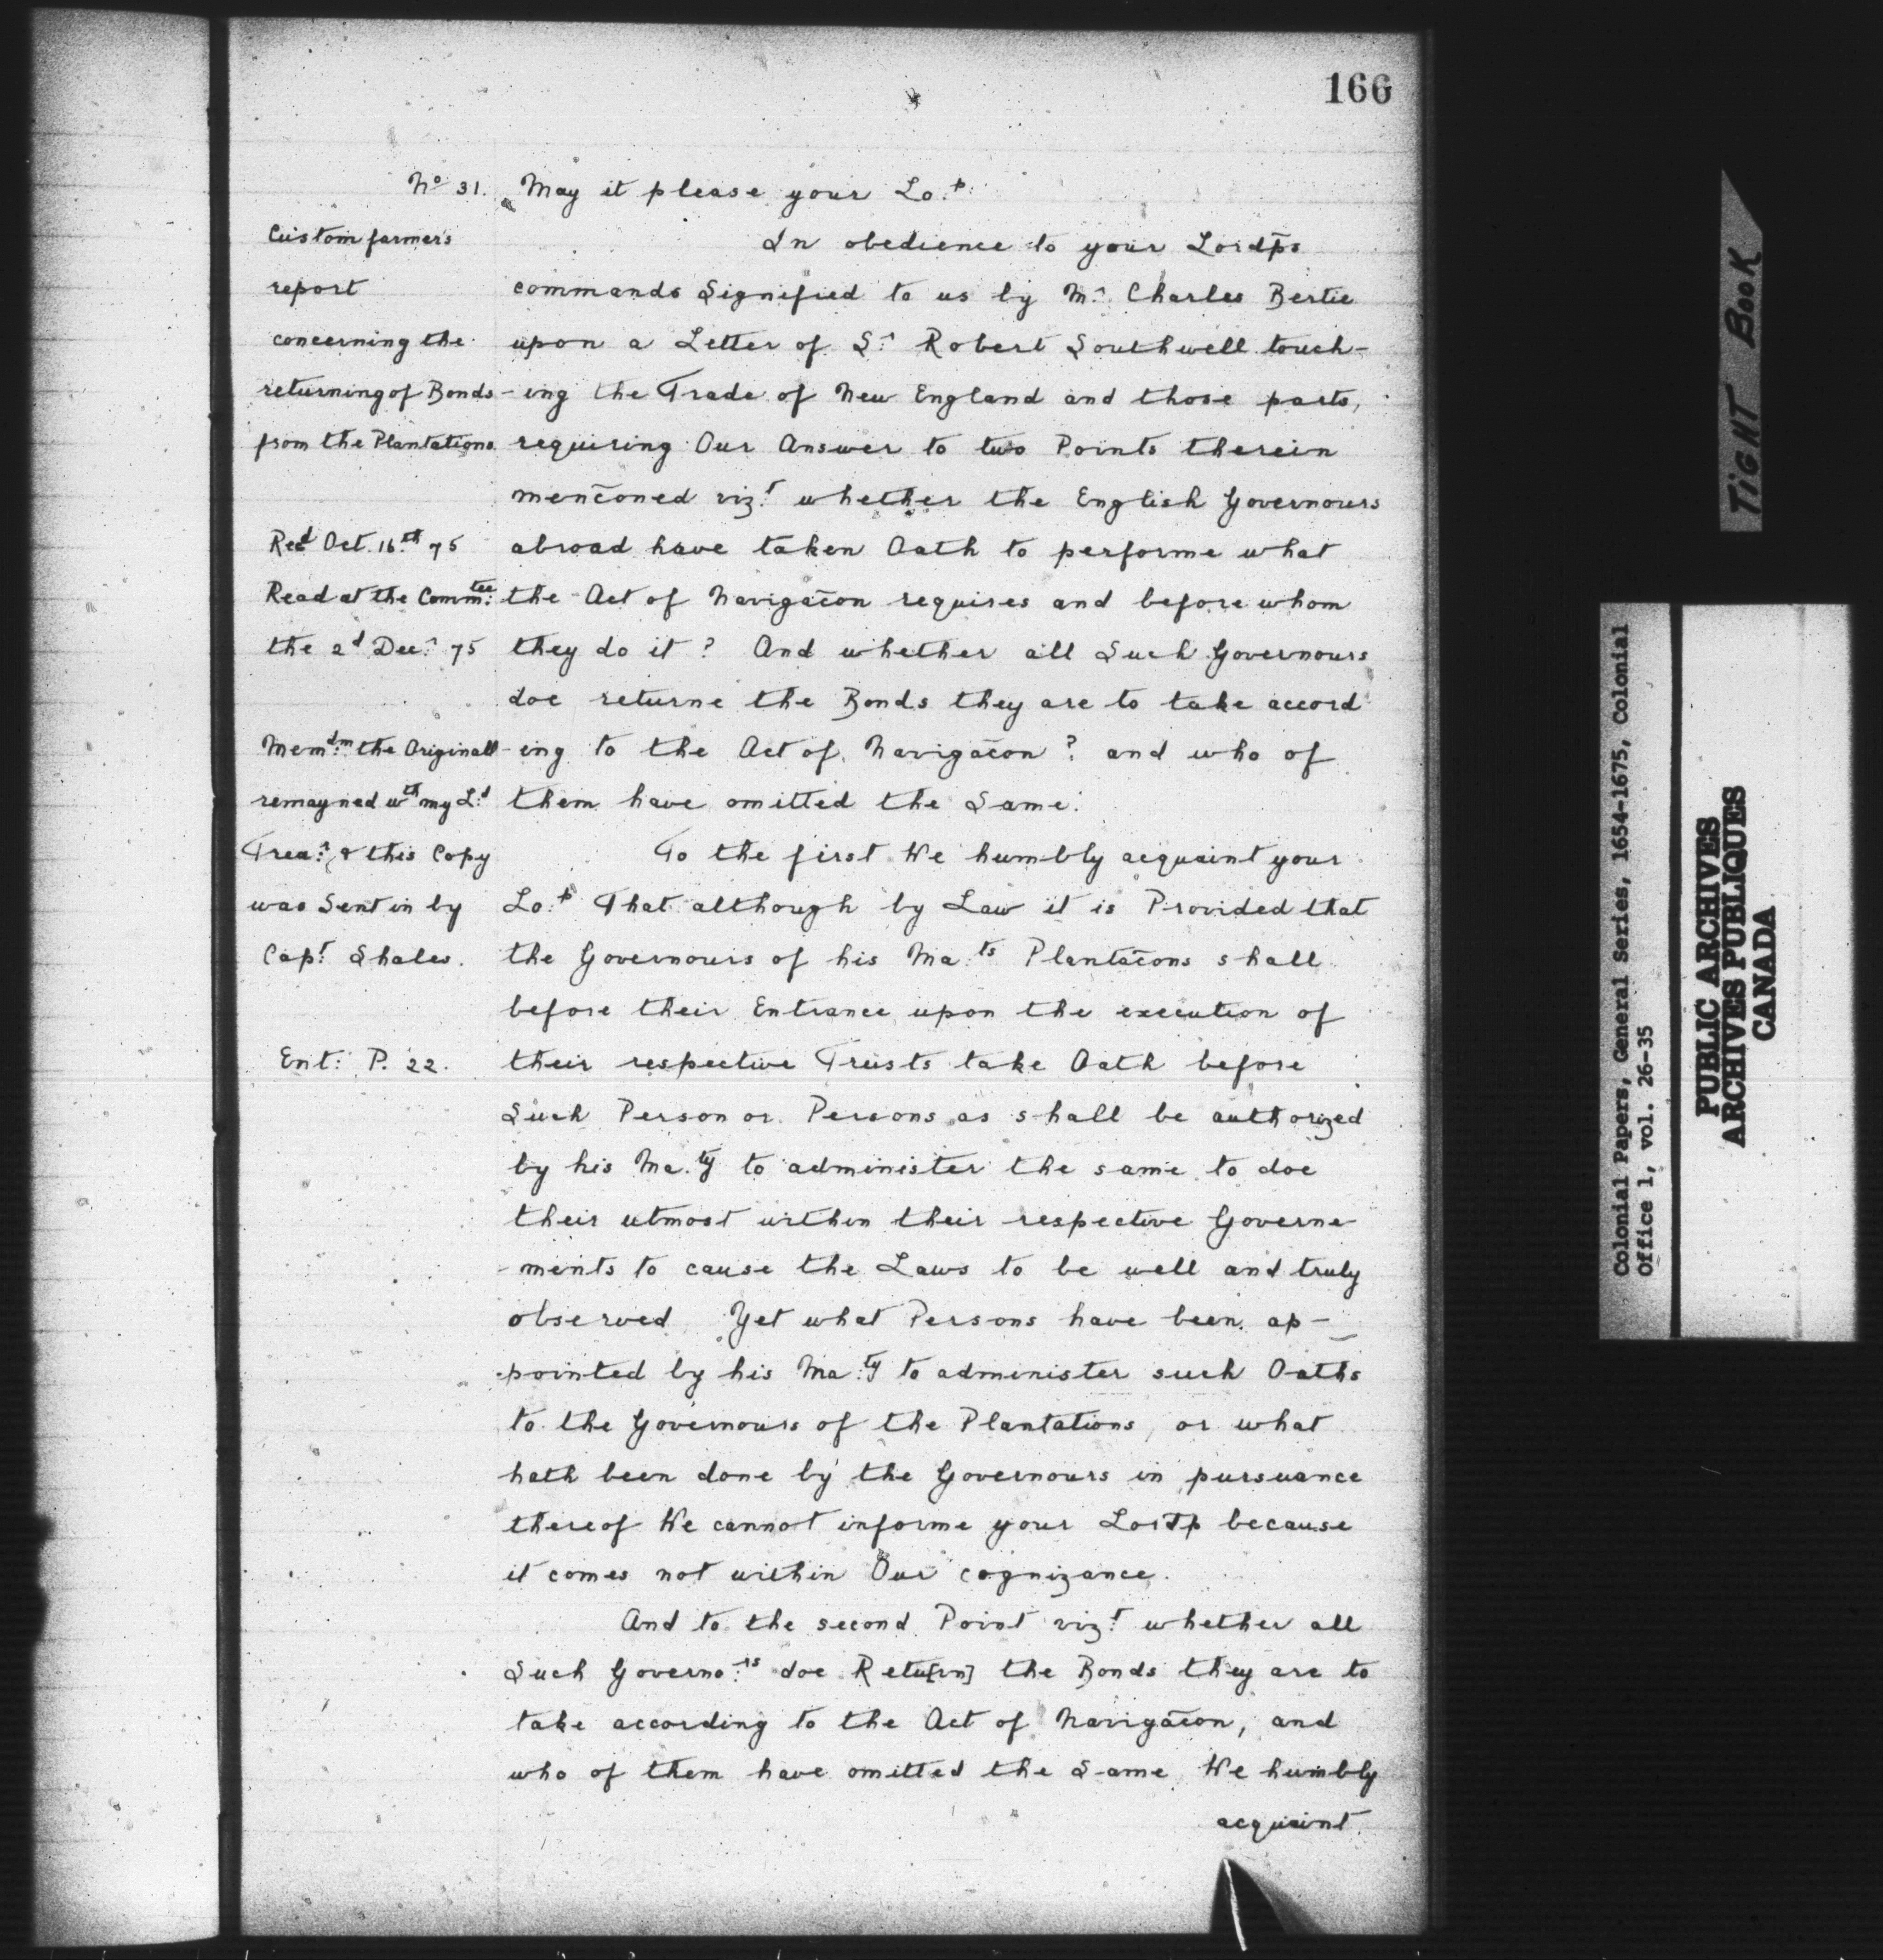 166
No 31.
Custom farmers
report
concerning the
returning of Bonds
from the Plantations
Recd Oct. 16th 75
Read at the Commtee:
the 2d Decr 75
Memdm: the Originall
remayned wth my Ld
Trear: & this Copy
was Sent in by
Capt Shales.
Ent: P. 22.
May it please your Lo:p
In obedience to your Lordps
commands Signified to us by Mr. Charles Bertie
upon a Letter of Sr Robert Southwell touch-
-ing the Trade of New England and those parts,
requiring Our Answer to two Points therein
menc̄oned vizt whether the English Governours
abroad have taken Oath to performe what
the Act of Navigac̄on requires and before whom
they do it? And whether all Such Governours
doe returne the Bonds they are to take accord
-ing to the Act of Navigac̄on? and who of
them have omitted the Same.
To the first We humbly acquaint your
Lo:p That although by Law it is Provided that
the Governours of his Ma:ts Plantac̄ons shall
before their Entrance upon the execution of
their respective Trusts take Oath before
Such Person or Persons as shall be authorized
by his Ma:ty to administer the same to doe
their utmost within their respective Governe
-ments to cause the Laws to be well and truly
observed Yet what Persons have been ap-
-pointed by his Ma:ty to administer such Oaths
to the Governours of the Plantations, or what
hath been done by the Governours in pursuance
thereof We cannot informe your Lordp because
it comes not within Our cognizance.
And to the second Point vizt whether all
Such Governo:rs doe Retu[rn] the Bonds they are to
take according to the Act of Navigac̄on, and
who of them have omitted the Same We humbly
acquaint
TIGHT BOOK
Colonial Papers, General Series, 1654-1675, Colonial
Office 1, vol. 26-35
PUBLIC ARCHIVES
ARCHIVES PUBLIQUES
CANADA